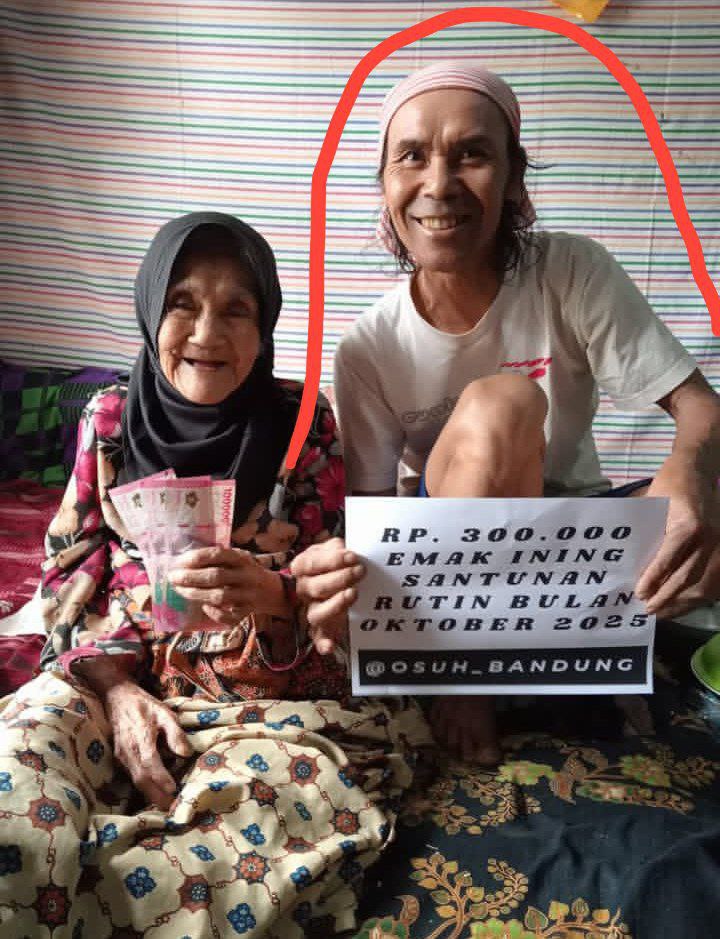 100000
RP. 300.000
EMAK INING
SANTUNAN
RUTIN BULAN
OKTOBER 2025
@OSUH_BANDUNG